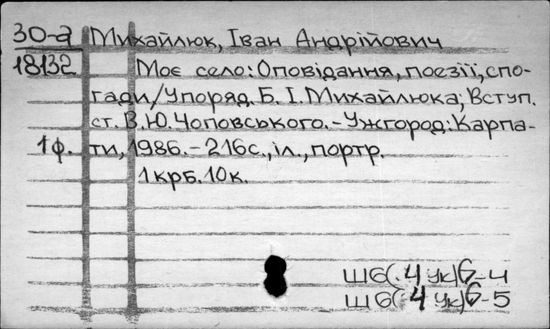 30-а Михайлюк, Іван Андрійович
18132 Моє село: Оповідання, поезії, спо-
гади/Упоряд. Б. І. Михайлюка; Вступ.
ст. В. Ю. Чоповського.-Ужгород: Карпа-
1ф. ти, 1986.-216с., іл., портр.
1 крб. 10к.
Ш6(4Ук)6-4
Ш6(4Ук)6-5